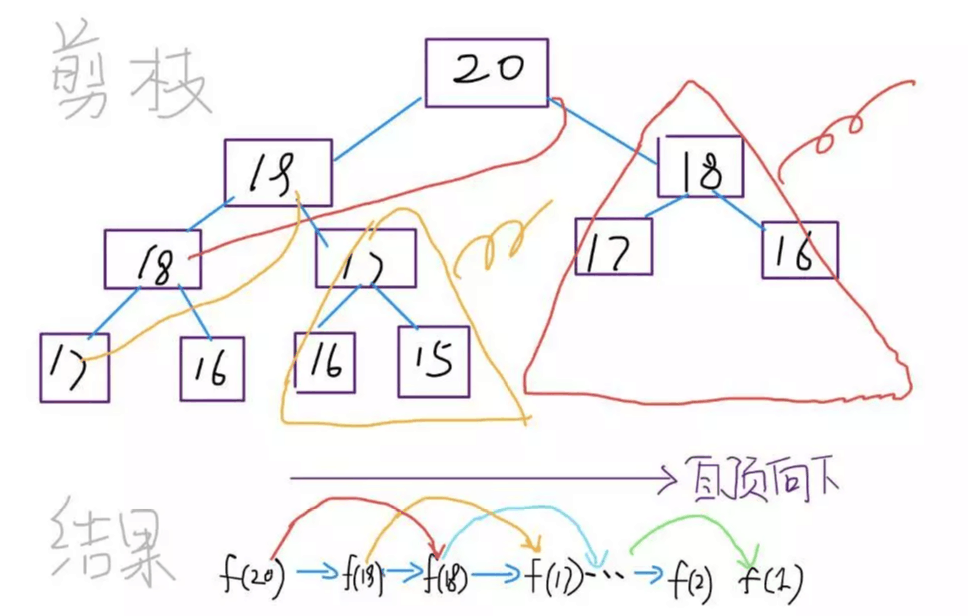 剪枝
20
19
18
18
17
17
16
17
16
16
15
自顶向下
结果
f(20) → f(19) → f(18) → f(17) ··· → f(2) f(1)